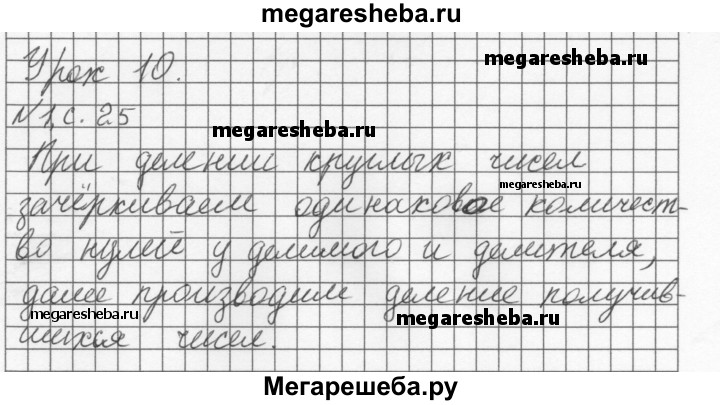 megaresheba.ru
Урок 10.
megaresheba.ru
№1, с. 25
megaresheba.ru
При делении круглых чисел
megaresheba.ru
зачёркиваем одинаковое количест-
во нулей у делимого и делителя,
далее производим деление получив-
megaresheba.ru
megaresheba.ru
шихся чисел.
Мегарешеба.ру